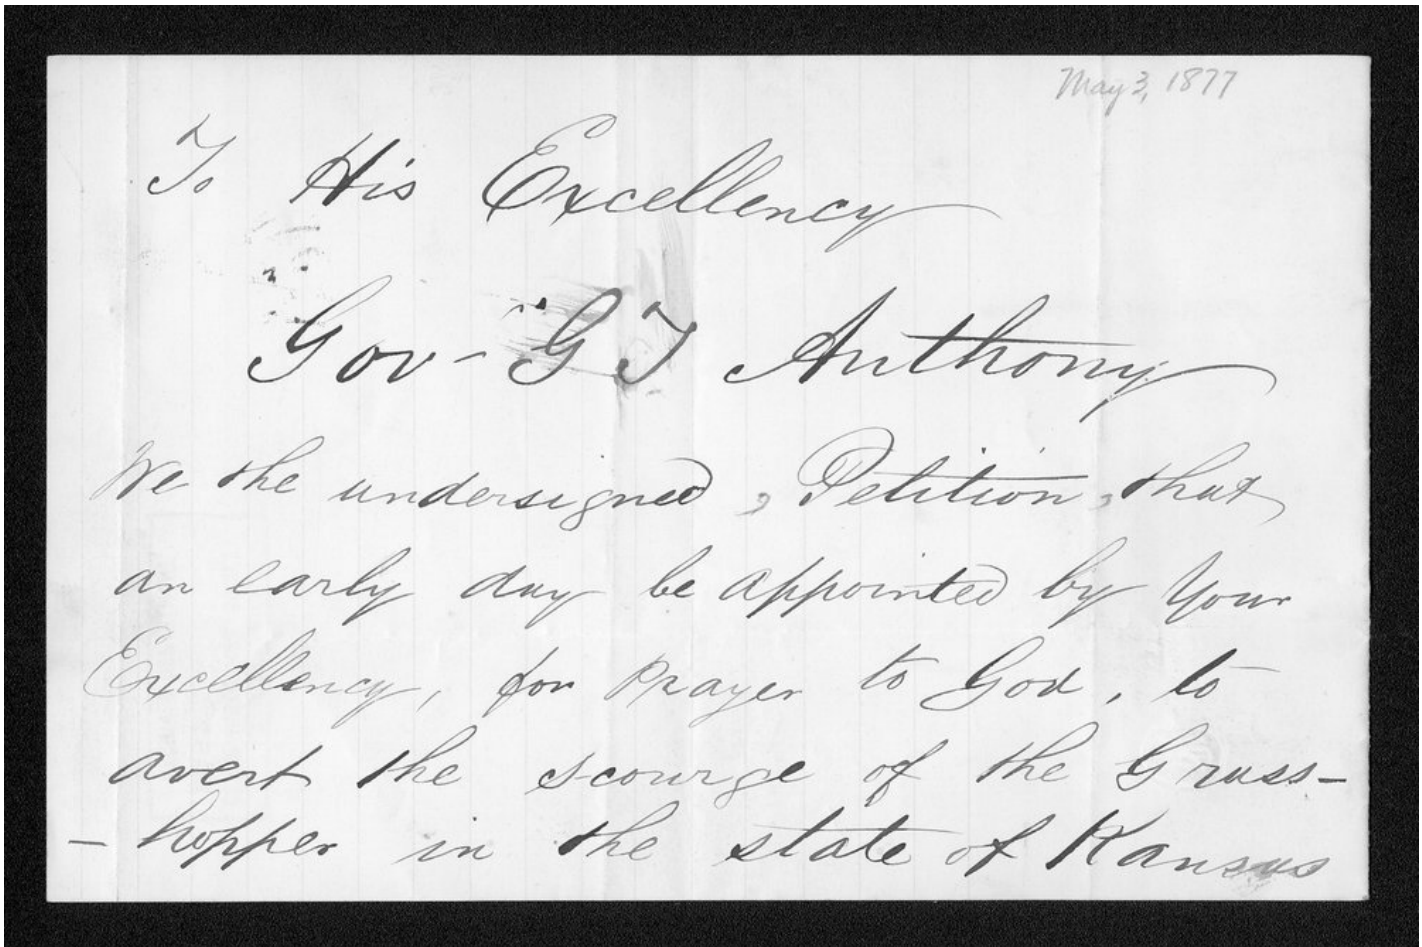 May 3, 1877
To His Excellency
Gov- G T Anthony
We the undersigned, Petition, that
an early day be appointed by Your
Excellency, for Prayer to God, to
avert the scourge of the Grass-
- hopper in the state of Kansas